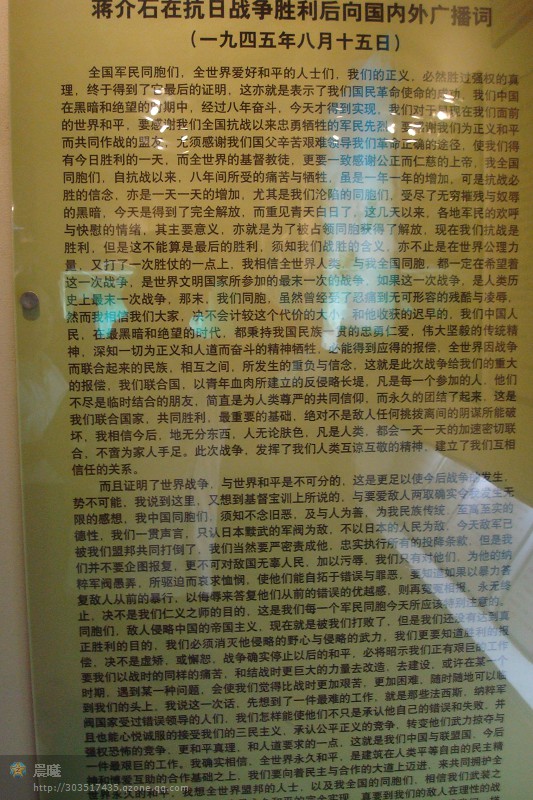 蒋介石在抗日战争胜利后向国内外广播词
(一九四五年八月十五日)
全国军民同胞们，全世界爱好和平的人士们，我们的正义，必然胜过强权的真
理，终于得到了它最后的证明，这亦就是表示了我们国民革命使命的成功，我们中国
在黑暗和绝望的时期中，经过八年奋斗，今天才得到实现，我们对于显现在我们面前
的世界和平，要感谢我们全国抗战以来忠勇牺牲的军民先烈，要感谢我们为正义和平
而共同作战的盟友，尤须感谢我们国父辛苦艰难领导我们革命正确的途径，使我们得
有今日胜利的一天，而全世界的基督教徒，更要一致感谢公正而仁慈的上帝，我全国
同胞们，自抗战以来，八年间所受的痛苦与牺牲，虽是一年一年的增加，可是抗战必
胜的信念，亦是一天一天的增加，尤其是我们沦陷的同胞们，受尽了无穷摧残与奴辱
的黑暗，今天是得到了完全解放，而重见青天白日了，这几天以来，各地军民的欢呼
与快慰的情绪，其主要意义，亦就是为了被占领同胞获得了解放，现在我们抗战是
胜利，但是这不能算是最后的胜利，须知我们战胜的含义，亦不止是在世界公理力
量，又打了一次胜仗的一点上，我相信全世界人类，与我全国同胞，都一定在希望着
这一次战争，是世界文明国家所参加的最末一次的战争，如果这一次战争，是人类历
史上最末一次战争，那末，我们同胞，虽然曾经受了忍痛到无可形容的残酷与凌辱，
然而我相信我们大家，决不会计较这个代价的大小，和他收获的迟早的，我们中国人
民，在最黑暗和绝望的时代，都秉持我国民族一贯的忠勇仁爱，伟大坚毅的传统精
神，深知一切为正义和人道而奋斗的精神牺牲，必能得到应得的报偿，全世界因战争
而联合起来的民族，相互之间，所发生的重负与信念，这就是此次战争给我们的重大
的报偿，我们联合国，以青年血肉所建立的反侵略长堤，凡是每一个参加的人，他们
不尽是临时结合的朋友，简直是为人类尊严的共同信仰，而永久的团结了起来，这是
我们联合国家，共同胜利，最重要的基础，绝对不是敌人任何挑拨离间的阴谋所能破
坏，我相信今后，地无分东西，人无论肤色，凡是人类，都会一天一天的加速密切联
合，不啻为家人手足。此次战争，发挥了我们人类互谅互敬的精神，建立了我们互相
信任的关系。
而且证明了世界战争，与世界和平是不可分的，这是更足以使今后战争的发生，
势不可能，我说到这里，又想到基督宝训上所说的，与要爱敌人两取确实令我发生无
限的感想，我中国同胞们，须知不念旧恶，及与人为善，为我民族传统，至高至实的
德性，我们一贯声言，只认日本黩武的军阀为敌，不以日本的人民为敌，今天敌军已
被我们盟邦共同打倒了，我们当然要严密责成他，忠实执行所有的投降条款，但是我
们并不要企图报复，更不可对敌国无辜人民，加以污辱，我们只有对他们，为他的纳
粹军阀愚弄，所驱迫而哀求恤悯，使他们能自拓于错误与罪恶，要知道如果以暴力答
复敌人从前的暴行，以侮辱来答复他们从前的错误的优越感，则再冤冤相报，永无终
止，决不是我们仁义之师的目的，这是我们每一个军民同胞今天所应该特别注意的。
同胞们，敌人侵略中国的帝国主义，现在就是被我们打败了，但是我们还没有达到真
正胜利的目的，我们必须消灭他侵略的野心与侵略的武力，我们更要知道胜利的报
偿，决不是虚矫，或懈恕，战争确实停止以后的和平，必将昭示我们正有艰巨的工作
要我们以战时的同样的痛苦，和结战时更巨大的力量去改造，去建设，或许在某一个
时期，遇到某一种问题，会使我们觉得比战时更加艰苦，更加困难，随时随地可以临
到我们的头上，我说这一次话，先想到了一件最难的工作，就是那些法西斯，纳粹军
阀国家受过错误领导的人们，我们怎样能使他们不只是承认他自己的错误和失败，并
且也能心悦诚服的接受我们的三民主义，承认公平正义的竞争，转变他们武力掠夺与
强权恐怖的竞争，更和平真理，和人道要求的一点，这就是我们中国与联盟国，今后
一件最艰巨的工作，我确实相信，全世界永久和平，是建筑在人类平等自由的民主精
神和博爱互助的合作基础之上，我们要向着民主与合作的大道上迈进，来共同拥护全
世界永久的和平，我想全世界盟邦的人士，以及我全国的同胞们，相信我们武装之
真要到我们的敌人在理性的战
晨曦
http://303517435.qzone.qq.com